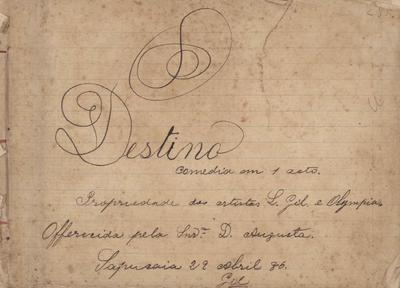 O
Destino
Comedia em 1 acto.
Propriedade dos artistas L. Gil. e Olympia
Offerecida pela Snrª. D. Augusta.
Sapucaia 22 Abril 86.
Gil